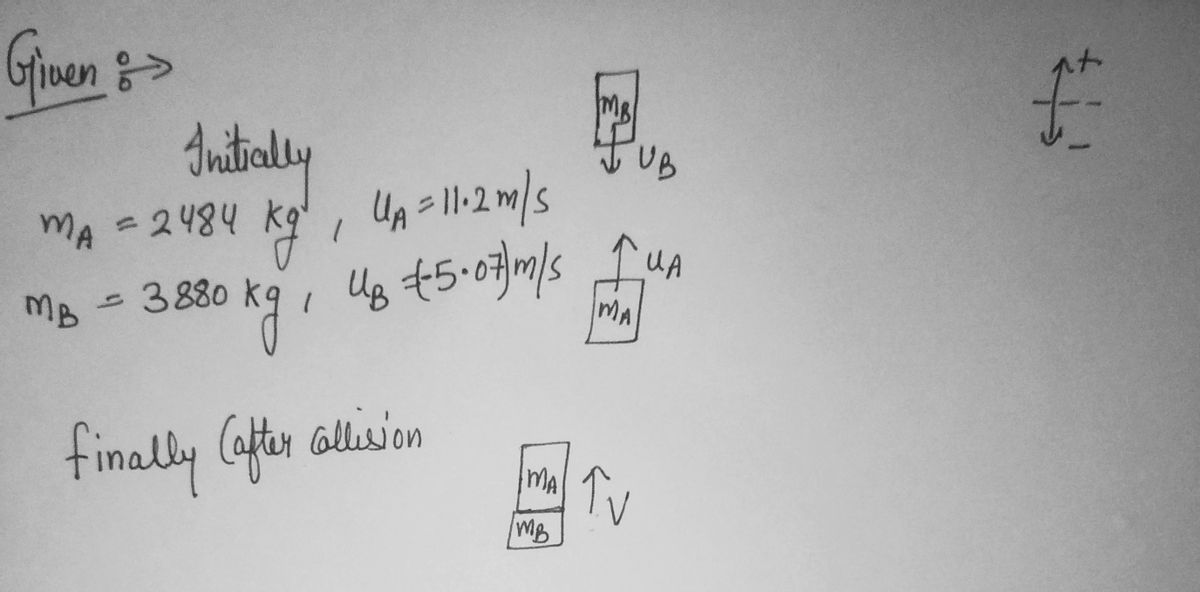 Given :→
+
-
mB
UB
Initially
mA = 2484 kg , uA = 11.2 m/s
uA
mB = 3880 kg , uB = (-5.07) m/s
mA
finally (after collision
mA
V
mB